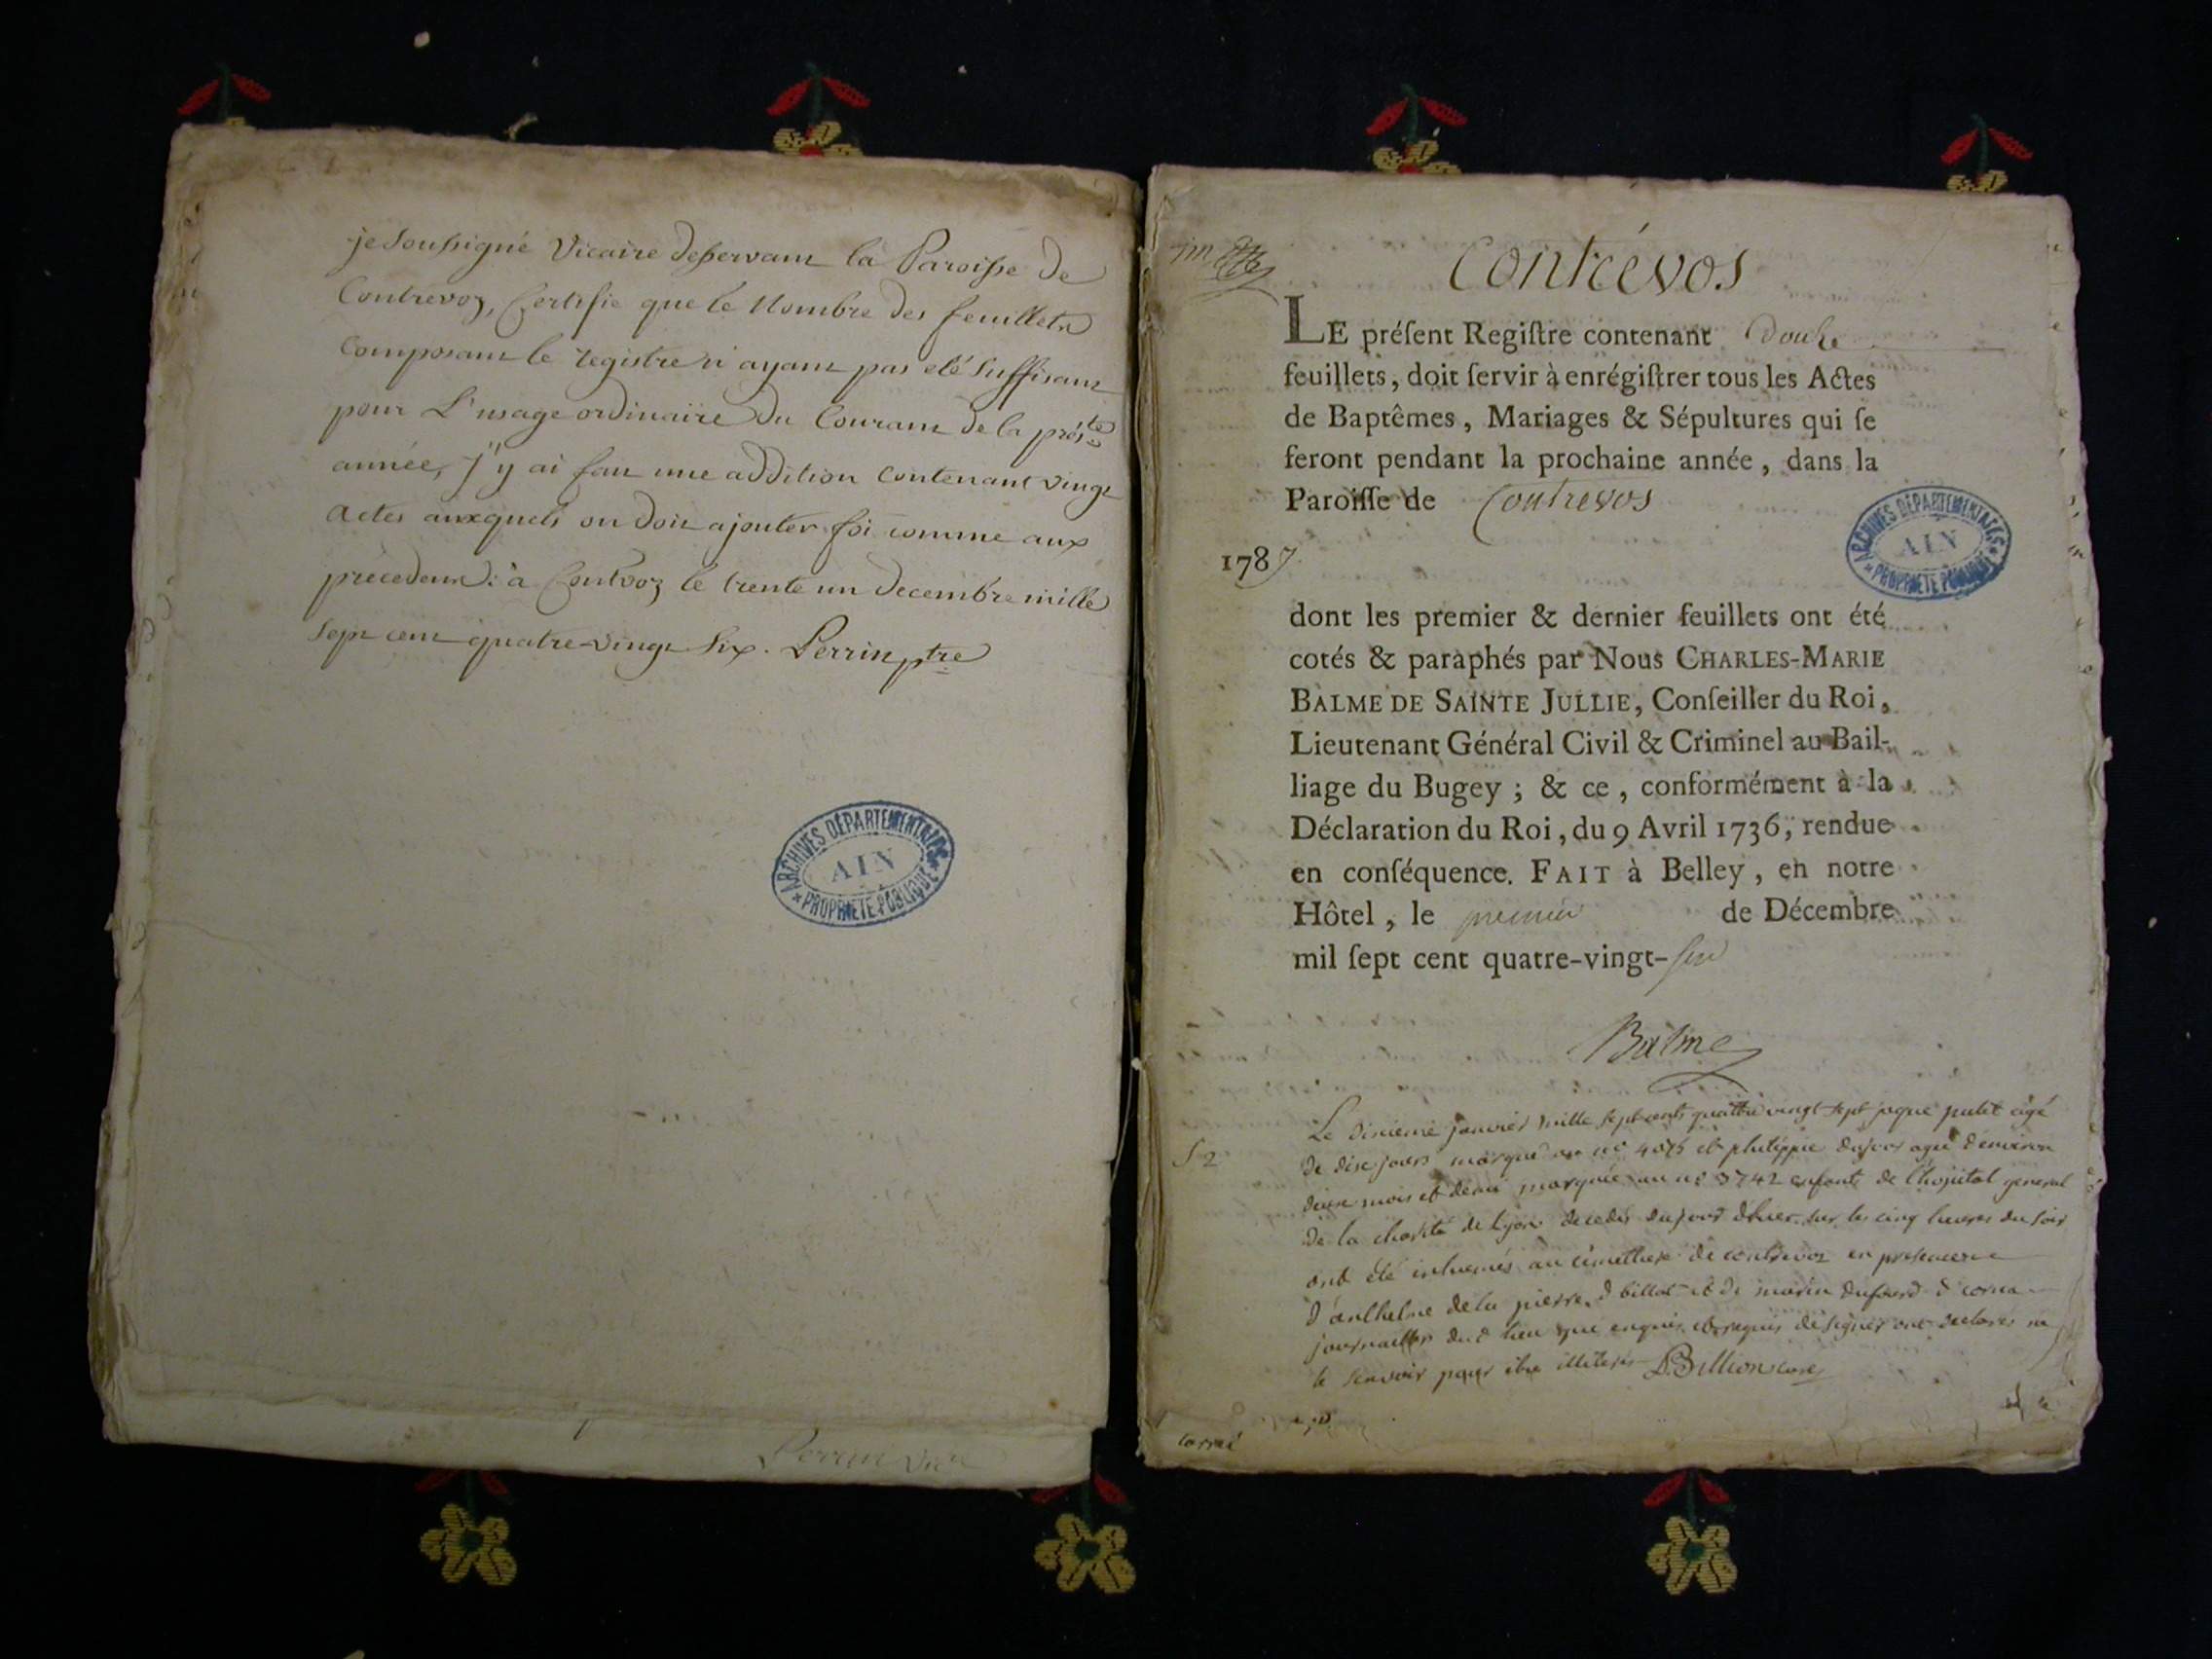 je soussigné Vicaire desservant la Paroisse de
Contrevoz, Certifie que le Nombre des feuillets
Composant le registre n'ayant pas eté suffisant
pour L'usage ordinaire du Courant de la prés.te
année, j'y ai fait une addition Contenant vingt
actes auxquels on doit ajouter foi comme aux
précedens: à Contvoz le trente un decembre mille
sept cent quatre-vingt six. Perrin ptre
ARCHIVES DÉPARTEMENTALES
AIN
* PROPRIÉTÉ PUBLIQUE *
Perrin vic
Contrévos
LE préſent Regiſtre contenant Douze
feuillets, doit ſervir à enrégiſtrer tous les Actes
de Baptêmes, Mariages & Sépultures qui ſe
feront pendant la prochaine année, dans la
Paroiſſe de Contrevos
ARCHIVES DÉPARTEMENTALES
AIN
* PROPRIÉTÉ PUBLIQUE *
1787
dont les premier & dernier feuillets ont été
cotés & paraphés par Nous CHARLES-MARIE
BALME DE SAINTE JULLIE, Conſeiller du Roi,
Lieutenant Général Civil & Criminel au Bail-
liage du Bugey ; & ce, conformément à la
Déclaration du Roi, du 9 Avril 1736, rendue
en conſéquence. FAIT à Belley, en notre
Hôtel, le premier de Décembre
mil ſept cent quatre-vingt-six
Balme
Le dixieme janvier mille sept cents quattre vingt sept jaque putet agé
de dix jours marqué au n° et philippe agé d'environ
deux mois et demi marquée au n° 3742 enfants de l'hopital general
S 2
de la charité de lyon decedés du jour d'hier sur les cinq heures du soir
ont été inhumés au cimethere de contrevoz en presence
d'anthelme de la pierre d billat et de marin dufourd d corna
journaliers dud lieu que enquis et requis de signer ont declarés ne
le scavoir pour etre illiterés D. Billion curé